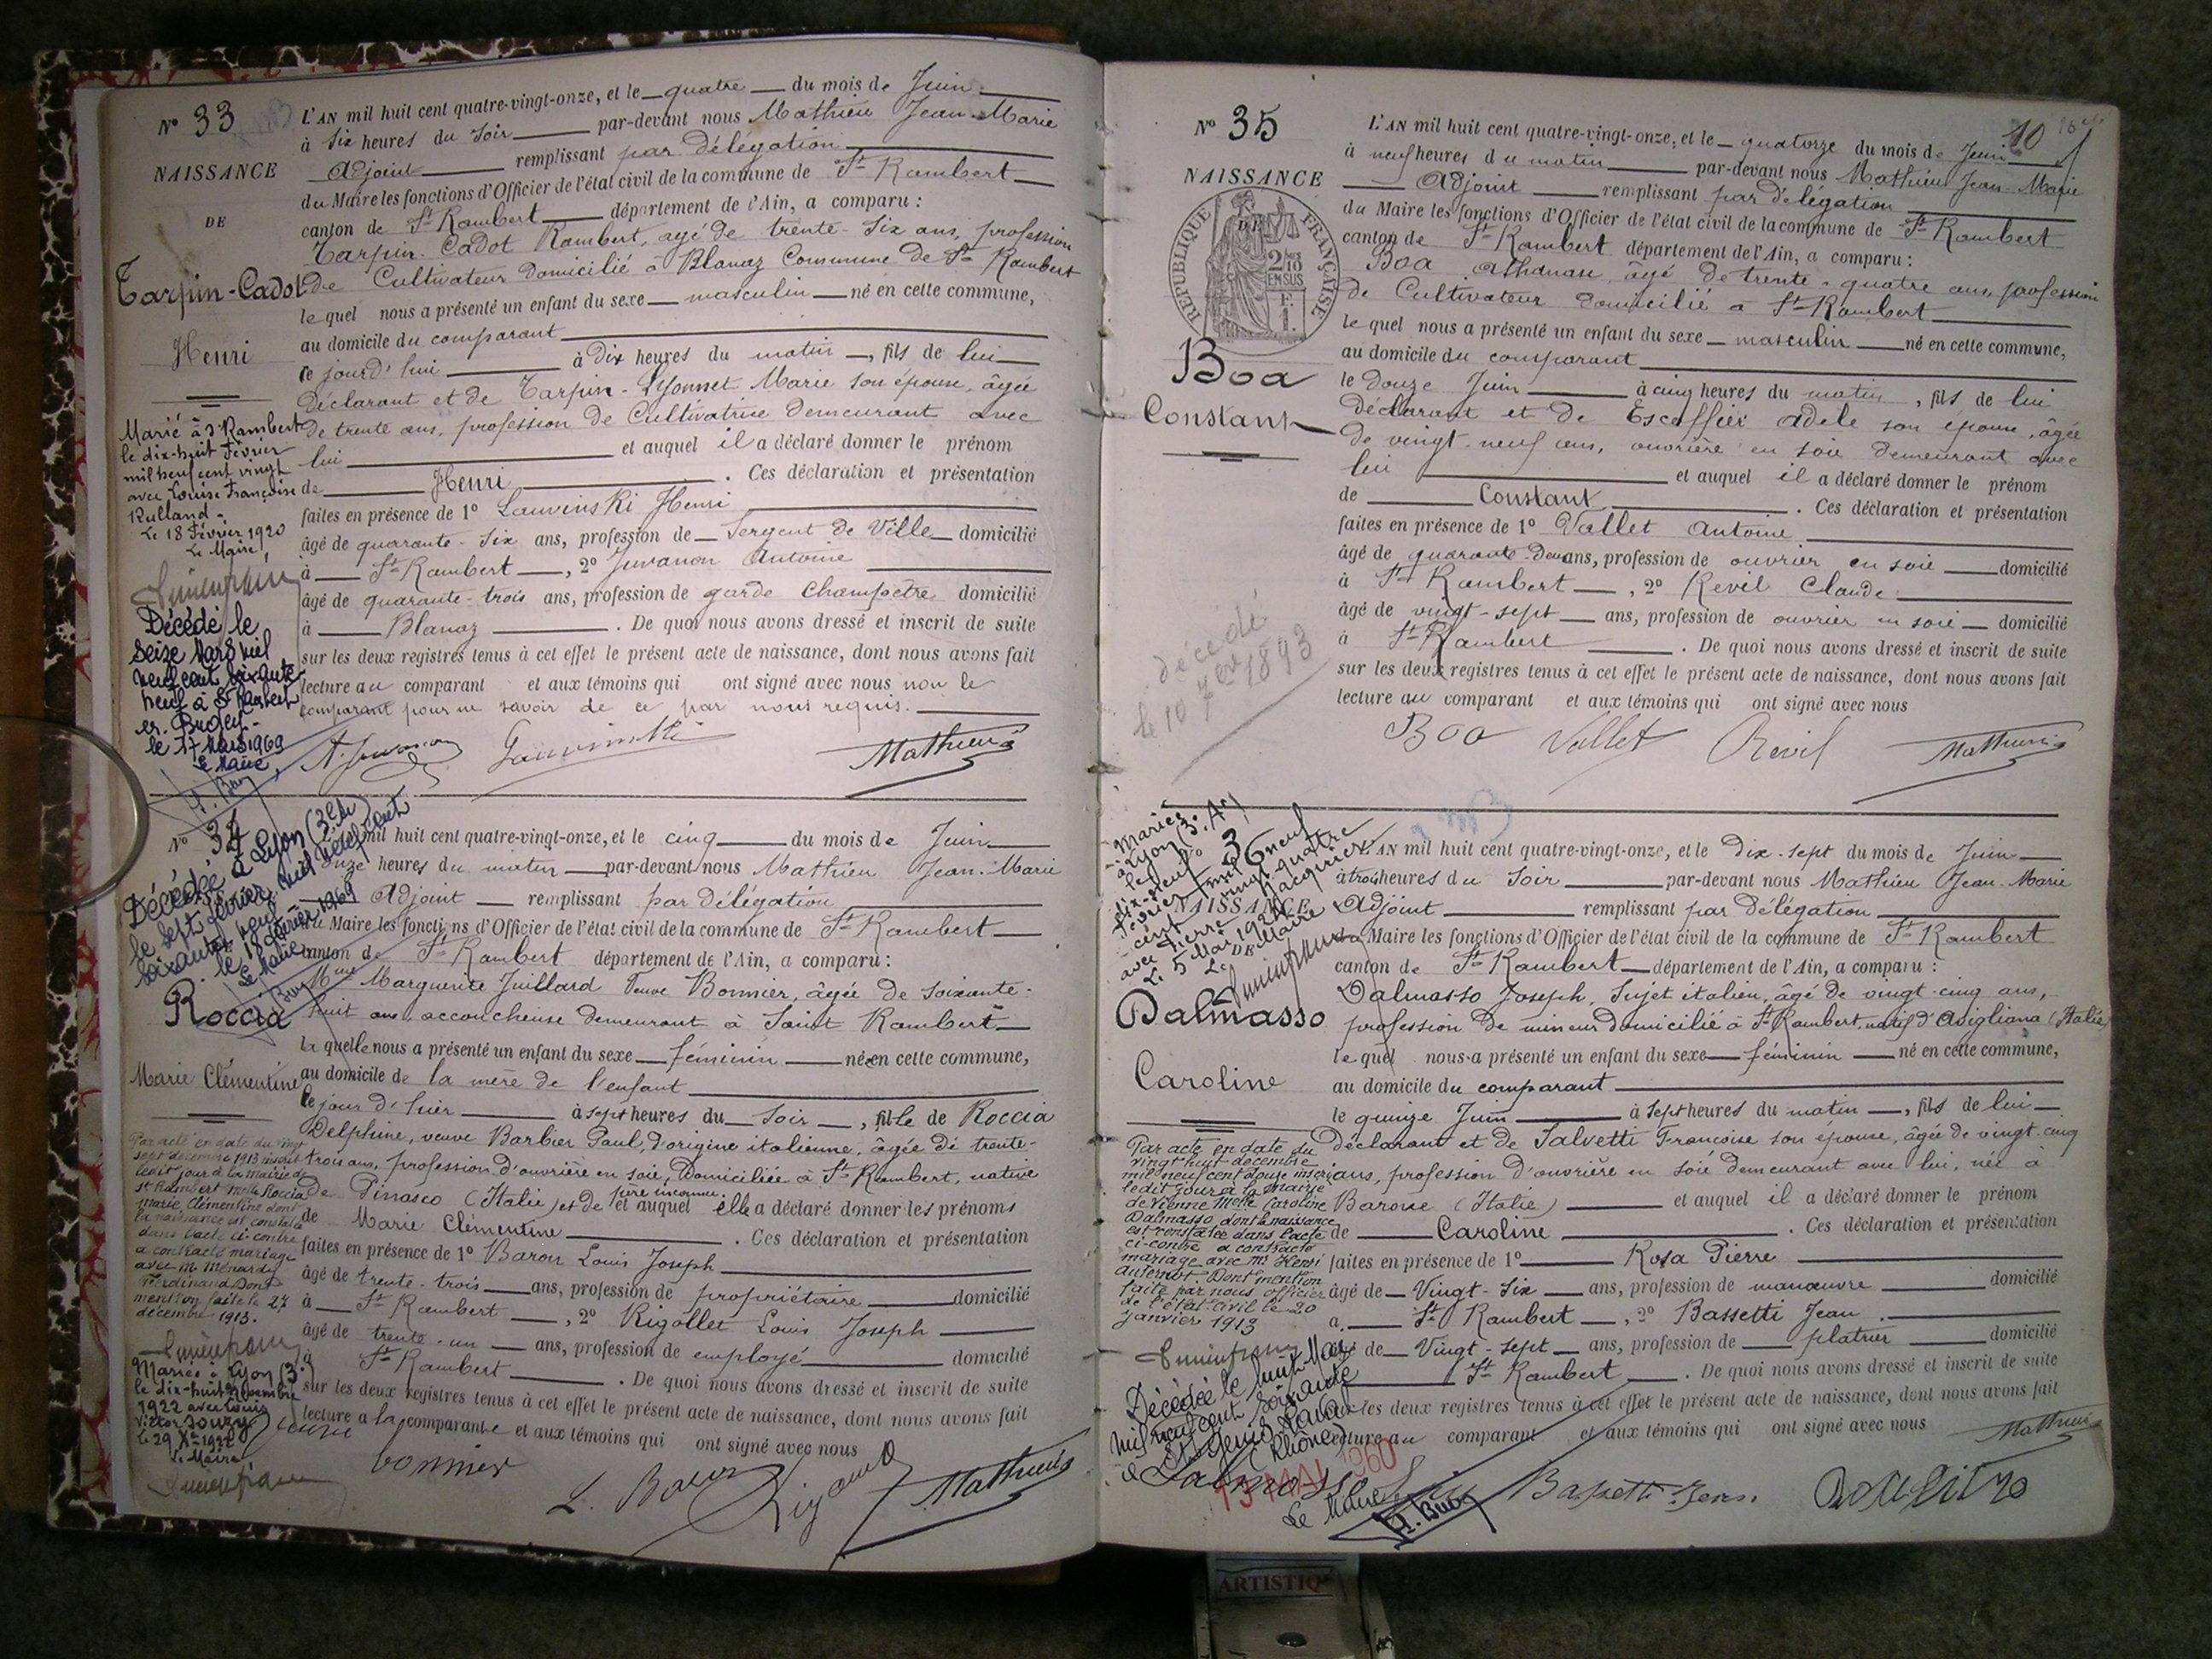 N° 33
NAISSANCE
DE
Tarpin-Cadot
Henri
Marié à St Rambert
le dix-huit Février
mil neuf cent vingt
avec Louise Françoise
Rulland
Le 18 Février 1920
Le Maire,
Décédé le
seize Mars mil
neuf cent soixante
neuf à St Rambert
en Bugey
le 17 Mars 1969
Le Maire
L'AN mil huit cent quatre-vingt-onze, et le quatre du mois de Juin
à six heures du soir par-devant nous Mathieu Jean-Marie
Adjoint remplissant par délégation
du Maire les fonctions d'Officier de l'état civil de la commune de St Rambert
canton de St Rambert département de l'Ain, a comparu :
Tarpin-Cadot Rambert, âgé de trente-six ans, profession
de Cultivateur domicilié à Blanaz Commune de St Rambert
le quel nous a présenté un enfant du sexe masculin né en cette commune,
au domicile du comparant
ce jourd'hui à Dix heures du matin, fils de lui
déclarant et de Tarpin-Lyonnet Marie son épouse, âgée
de trente ans, profession de Cultivatrice demeurant avec
lui et auquel il a déclaré donner le prénom
de Henri. Ces déclaration et présentation
faites en présence de 1° Lauvinski Henri
âgé de quarante-six ans, profession de Sergent de Ville domicilié
à St Rambert, 2° Juvanon Antoine
âgé de quarante-trois ans, profession de garde Champêtre domicilié
à Blanaz. De quoi nous avons dressé et inscrit de suite
sur les deux registres tenus à cet effet le présent acte de naissance, dont nous avons fait
lecture au comparant et aux témoins qui ont signé avec nous non le
comparant pour ne savoir de ce par nous requis.
A. Juvanon Mathieu
N° 34
Décédée à Lyon (3e)
le sept février mil neuf cent
soixante neuf
le 18 février 1969
Le Maire
Roccia
Marie Clémentine
Par acte en date du vingt
sept décembre 1913 inscrit
ledit jour à la mairie de
St Rambert Melle Roccia
Marie Clémentine dont
la naissance est constatée
dans l'acte ci-contre
a contracté mariage
avec M. Ménardy
Ferdinand Dont
mention faite le 27
décembre 1913.
Mariée à Lyon (3e)
le dix-huit Novembre
1922 avec Louis
Victor Jouvy
Le 29 Xbre 1922
Le Maire
L'AN mil huit cent quatre-vingt-onze, et le cinq du mois de Juin
à onze heures du matin par-devant nous Mathieu Jean-Marie
Adjoint remplissant par délégation
du Maire les fonctions d'Officier de l'état civil de la commune de St Rambert
canton de St Rambert département de l'Ain, a comparu :
Mme Marguerite Juillard Veuve Bonnier, âgée de soixante-
huit ans, accoucheuse demeurant à Saint Rambert
la quelle nous a présenté un enfant du sexe féminin née en cette commune,
au domicile de la mère de l'enfant
le jour d'hier à sept heures du soir, fille de Roccia
Delphine, veuve Barbier Paul, d'origine italienne, âgée de trente-
trois ans, profession d'ouvrière en soie, domiciliée à St Rambert, native
de Pinasco (Italie) et de père inconnu. et auquel elle a déclaré donner les prénoms
de Marie Clémentine. Ces déclaration et présentation
faites en présence de 1° Baron Louis Joseph
âgé de trente-trois ans, profession de propriétaire domicilié
à St Rambert, 2° Rigollet Louis Joseph
âgé de trente-un ans, profession de employé domicilié
à St Rambert. De quoi nous avons dressé et inscrit de suite
sur les deux registres tenus à cet effet le présent acte de naissance, dont nous avons fait
lecture à la comparante et aux témoins qui ont signé avec nous
veuve bonnier L. Baron Mathieu
10
N° 35
NAISSANCE
DE
RÉPUBLIQUE FRANÇAISE
2/10 EN SUS
1 F.
Boa
Constant
décédé
le 10 7bre 1893
L'AN mil huit cent quatre-vingt-onze, et le quatorze du mois de Juin
à neuf heures du matin par-devant nous Mathieu Jean-Marie
Adjoint remplissant par délégation
du Maire les fonctions d'Officier de l'état civil de la commune de St Rambert
canton de St Rambert département de l'Ain, a comparu :
Boa Athanase, âgé de trente-quatre ans, profession
de Cultivateur domicilié à St Rambert
le quel nous a présenté un enfant du sexe masculin né en cette commune,
au domicile du comparant
le douze Juin à cinq heures du matin, fils de lui
déclarant et de Escoffier Adele son épouse, âgée
de vingt-neuf ans, ouvrière en soie demeurant avec
lui et auquel il a déclaré donner le prénom
de Constant. Ces déclaration et présentation
faites en présence de 1° Vallet Antoine
âgé de quarante-deux ans, profession de ouvrier en soie domicilié
à St Rambert, 2° Revil Claude
âgé de vingt-sept ans, profession de ouvrier en soie domicilié
à St Rambert. De quoi nous avons dressé et inscrit de suite
sur les deux registres tenus à cet effet le présent acte de naissance, dont nous avons fait
lecture au comparant et aux témoins qui ont signé avec nous
Boa Vallet Revil Mathieu
Mariée
à Lyon (3e Ar)
le
dix-neuf
février mil neuf
cent vingt-quatre
avec Pierre Jacquier
Le 5 Mai 1924
Le Maire
N° 36
NAISSANCE
DE
Dalmasso
Caroline
Par acte en date du
vingt huit décembre
mil neuf cent douze inscrit
ledit jour à la mairie
de Vienne Melle Caroline
Dalmasso dont la naissance
est constatée dans l'acte
ci-contre a contracté
mariage avec Mr Henri
Dont mention
faite par nous officier
de l'état-civil le 20
janvier 1913
Décédée le huit Mai
mil neuf cent soixante
à St Genis Laval
(Rhône)
13 MAI 1960
Le Maire
L'AN mil huit cent quatre-vingt-onze, et le dix-sept du mois de Juin
à trois heures du soir par-devant nous Mathieu Jean-Marie
Adjoint remplissant par délégation
du Maire les fonctions d'Officier de l'état civil de la commune de St Rambert
canton de St Rambert département de l'Ain, a comparu :
Dalmasso Joseph, Sujet italien, âgé de vingt-cinq ans,
profession de mineur domicilié à St Rambert, natif d'Avigliana (Italie)
le quel nous a présenté un enfant du sexe féminin né en cette commune,
au domicile du comparant
le quinze Juin à sept heures du matin, fils de lui
déclarant et de Salvetti Françoise son épouse, âgée de vingt-cinq
ans, profession d'ouvrière en soie demeurant avec lui, née à
(Italie) et auquel il a déclaré donner le prénom
de Caroline. Ces déclaration et présentation
faites en présence de 1° Rosa Pierre
âgé de Vingt-six ans, profession de manœuvre domicilié
à St Rambert, 2° Bassetti Jean
âgé de Vingt-sept ans, profession de platrier domicilié
à St Rambert. De quoi nous avons dressé et inscrit de suite
sur les deux registres tenus à cet effet le présent acte de naissance, dont nous avons fait
lecture au comparant et aux témoins qui ont signé avec nous
Mathieu
Dalmasso Bassetti Jean
ARTISTIQ